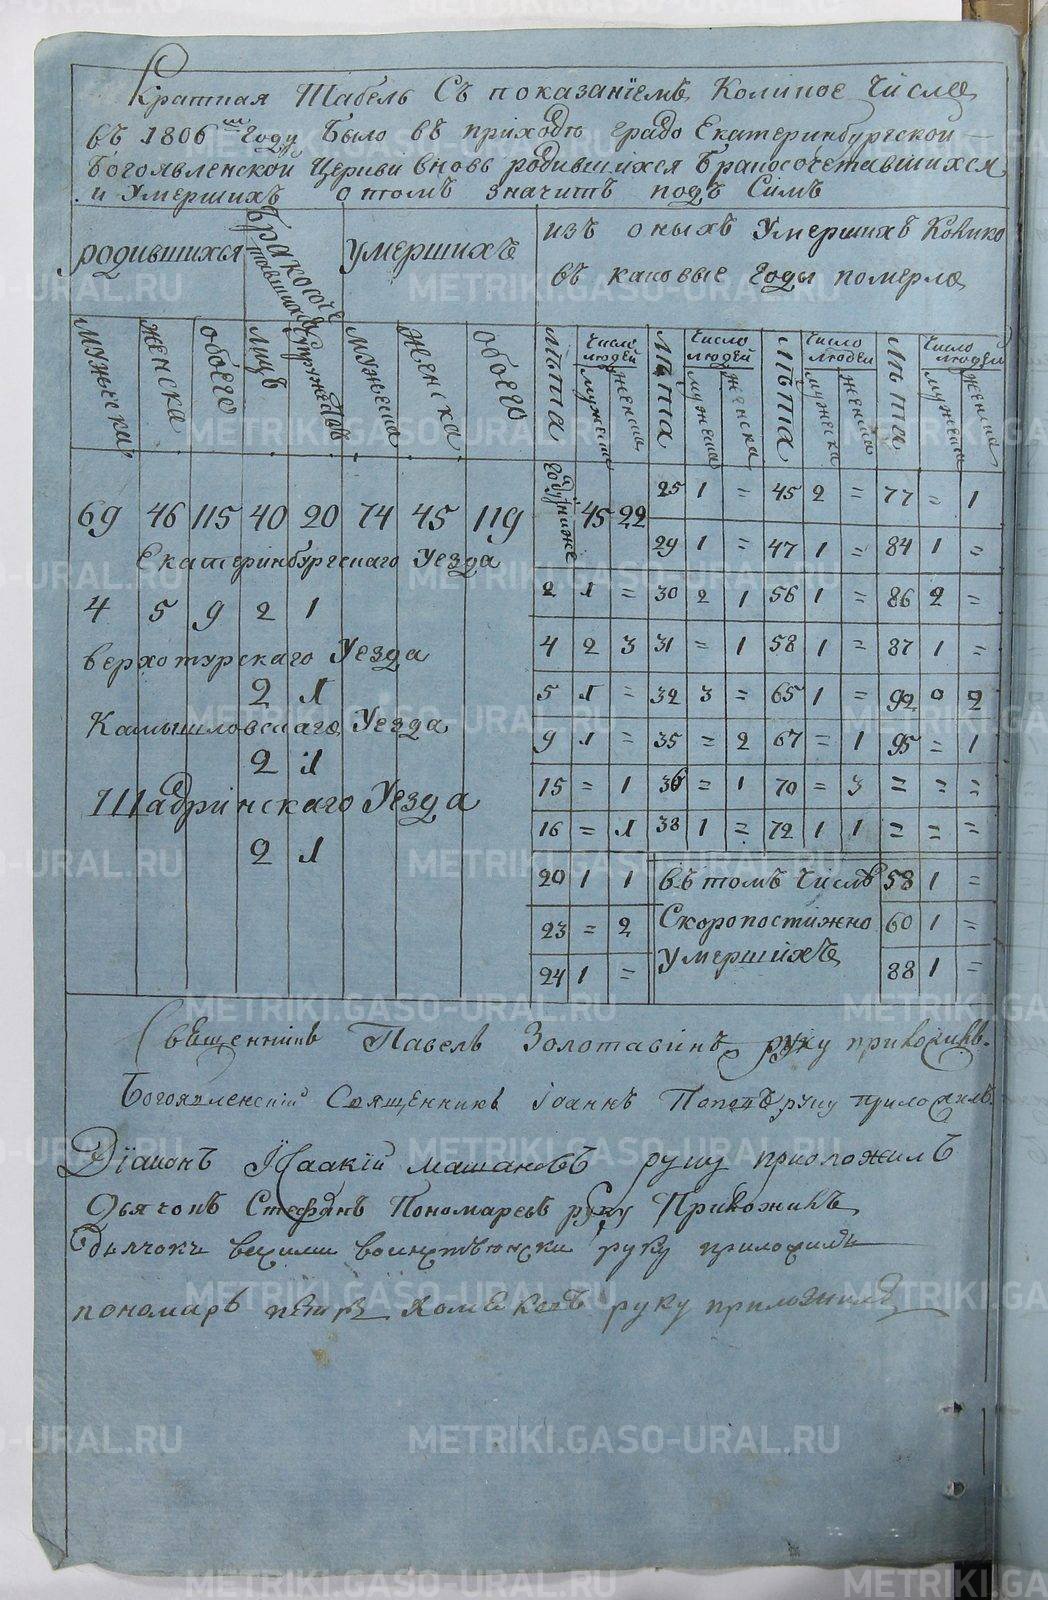 Краткая Табель Съ показанїемъ Коликое Число
въ 1806м Году Было въ приходѣ градо Екатеринбургской
Богоявленской Церкви вновь родившихся Бракосочетавшихся
и Умершихъ о томъ значитъ подъ Симъ
родившихся Бракосочетавшихся умершихъ изъ оныхъ Умершихъ Колико
въ каковые Годы померло
мужеска женска обоего Лицъ Супружествъ мужеска женска обоего лѣта Число людей мужеска женска лѣта Число людей мужеска женска лѣта Число людей мужеска женска лѣта Число людей мужеска женска
69 46 115 40 20 74 45 119 45 22 25 1 = 45 2 = 77 = 1
29 1 = 47 1 = 84 1 =
Екатеринбургскаго Уезда
4 5 9 2 1 2 1 = 30 2 1 56 1 = 86 2 =
верхотурскаго Уезда 4 2 3 31 = 1 58 1 = 87 1 =
2 1 5 1 = 32 3 = 65 1 = 92 0 2
Камышловскаго Уезда 9 1 = 35 = 2 67 = 1 95 = 1
2 1
Шадринскаго Уезда 15 = 1 36 = 1 70 = 3 = = =
2 1 16 = 1 38 1 = 72 1 1 = = =
20 1 1 въ томъ Числѣ 58 1 =
23 = 2 Скоропостижно 60 1 =
24 1 = Умершихъ 88 1 =
Священникъ Павелъ Золотавинъ руку приложилъ.
Богоявленскїй Священникъ Іоаннъ Поповъ руку приложилъ
Дїаконъ Исаакїй машановъ руку приложилъ
Дьячокъ Стефанъ Пономаревъ руку Приложилъ
дьячокъ руку приложилъ
пономарь петръ руку приложилъ
METRIKI.GASO-URAL.RU